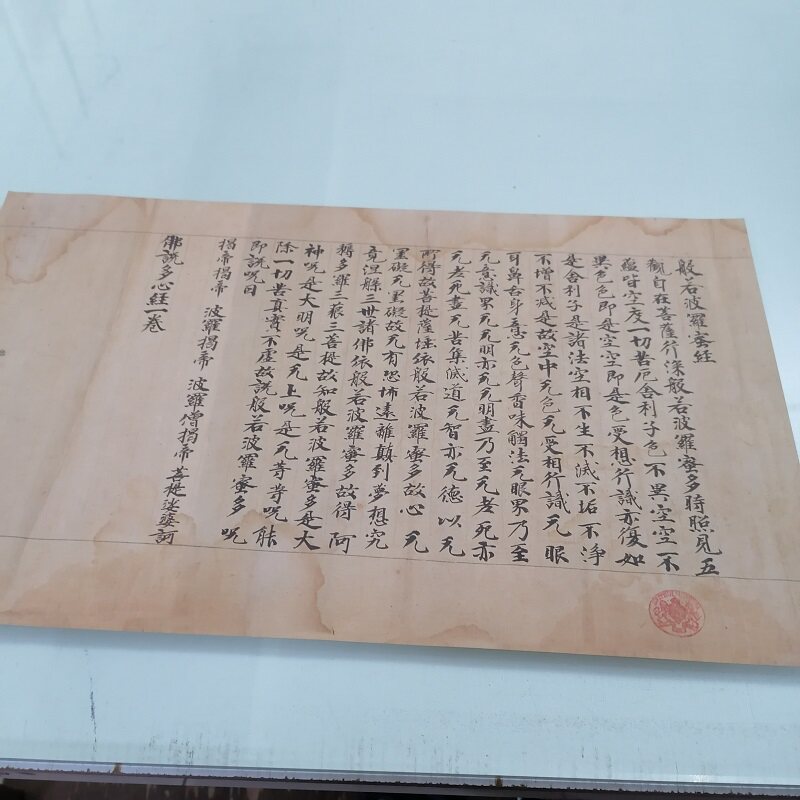 般若波羅蜜經
觀自在菩薩行深般若波羅蜜多時照見五
蘊皆空度一切苦厄舍利子色不異空空不
異色色即是空空即是色受想行識亦復如
是舍利子是諸法空相不生不滅不垢不淨
不增不減是故空中无色无受相行識无眼
耳鼻舌身意无色聲香味觸法无眼界乃至
无意識界无无明亦无无明盡乃至无老死亦
无老死盡无苦集滅道无智亦无德以无
所得故菩提薩埵依般若波羅蜜多故心无
罣礙无罣礙故无有恐怖遠離顛到夢想究
竟涅槃三世諸佛依般若波羅蜜多故得阿
耨多羅三藐三菩提故知般若波羅蜜多是大
神呪是大明呪是无上呪是无等等呪能
除一切苦真實不虛故說般若波羅蜜多呪
即說呪曰
揭帝揭帝 波羅揭帝 波羅僧揭帝 菩提娑婆訶
佛說多心經一卷